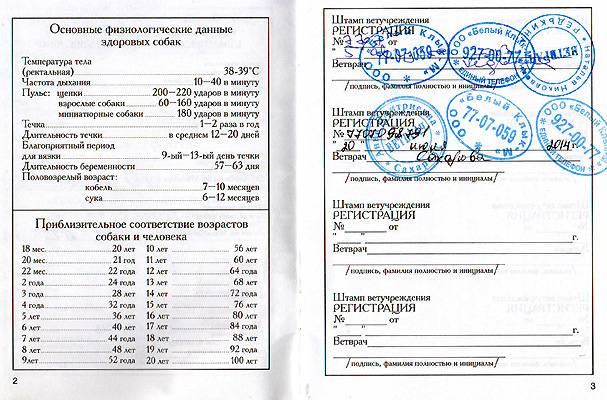 Основные физиологические данные
здоровых собак
Температура тела
(ректальная) 38-39°С
Частота дыхания 10–40 в минуту
Пульс: щенки 200–220 ударов в минуту
взрослые собаки 60–160 ударов в минуту
миниатюрные собаки 180 ударов в минуту
Течка 1–2 раза в год
Длительность течки в среднем 12–20 дней
Благоприятный период
для вязки 9-ый–13-ый день течки
Длительность беременности 57–63 дня
Половозрелый возраст:
кобель 7–10 месяцев
сука 6–12 месяцев
Приблизительное соответствие возрастов
собаки и человека
18 мес. 20 лет 10 лет 56 лет
20 мес. 21 год 11 лет 60 лет
22 мес. 22 года 12 лет 64 года
2 года 24 года 13 лет 68 лет
3 года 28 лет 14 лет 72 года
4 года 32 года 15 лет 76 лет
5 лет 36 лет 16 лет 80 лет
6 лет 40 лет 17 лет 84 года
7 лет 44 года 18 лет 88 лет
8 лет 48 лет 19 лет 92 года
9лет 52 года 20 лет 100 лет
2
Штамп ветучреждения
РЕГИСТРАЦИЯ
№ от
Ветврач
/подпись, фамилия полностью и инициалы/
ООО «Белый Клык»
77-07-059
ООО «Белый Клык»
927-00-77
ЕДИНЫЙ ТЕЛЕФОН
Штамп ветучреждения
РЕГИСТРАЦИЯ
№ 7707098791
"20" июля 2014г.
Ветврач Сахарова
/подпись, фамилия полностью и инициалы/
«Белый Клык» ООО
77-07-059
ООО «Белый
927-00-77
ЕДИНЫЙ ТЕЛЕФОН
Штамп ветучреждения
РЕГИСТРАЦИЯ
№ от
" " г.
Ветврач
/подпись, фамилия полностью и инициалы/
Штамп ветучреждения
РЕГИСТРАЦИЯ
№ от
" " г.
Ветврач
/подпись, фамилия полностью и инициалы/
3